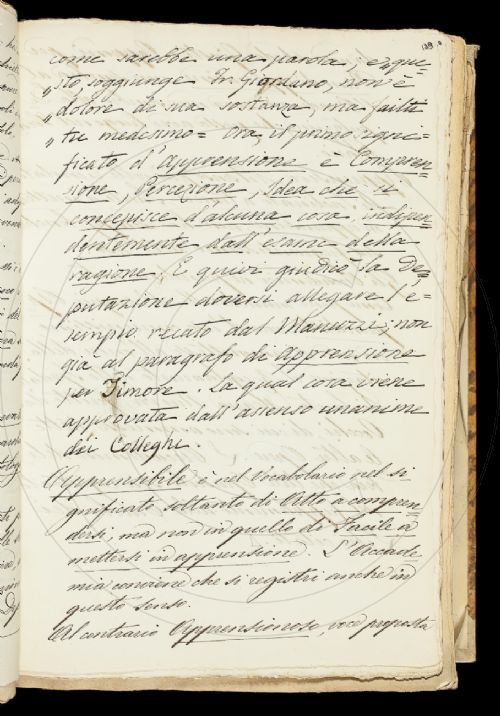 come sarebbe una parola; e que-
„sto, soggiunge Fr. Giordano, non è
„dolore di sua sostanza, ma failti
„tu medesimo= Ora, il primo signi-
ficato d'apprensione è Compren-
sione, Percezione, Idea che si
concepisce d'alcuna cosa indipen-
dentemente dall'esame della
ragione. E quivi giudicò la De-
putazione doversi allegare l'e-
sempio recato dal Manuzzi, non
già al paragrafo di Apprensione
per Timore. La qual cosa viene
approvata dall'assenso unanime
dei Colleghi.
Apprensibile è nel Vocabolario nel si
gnificato soltanto di Atto a compren
dersi, ma non in quello di Facile a
mettersi in apprensione. L'Accade
mia conviene che si registri anche in
questo senso.
Al contrario Apprensionoso, voce proposta